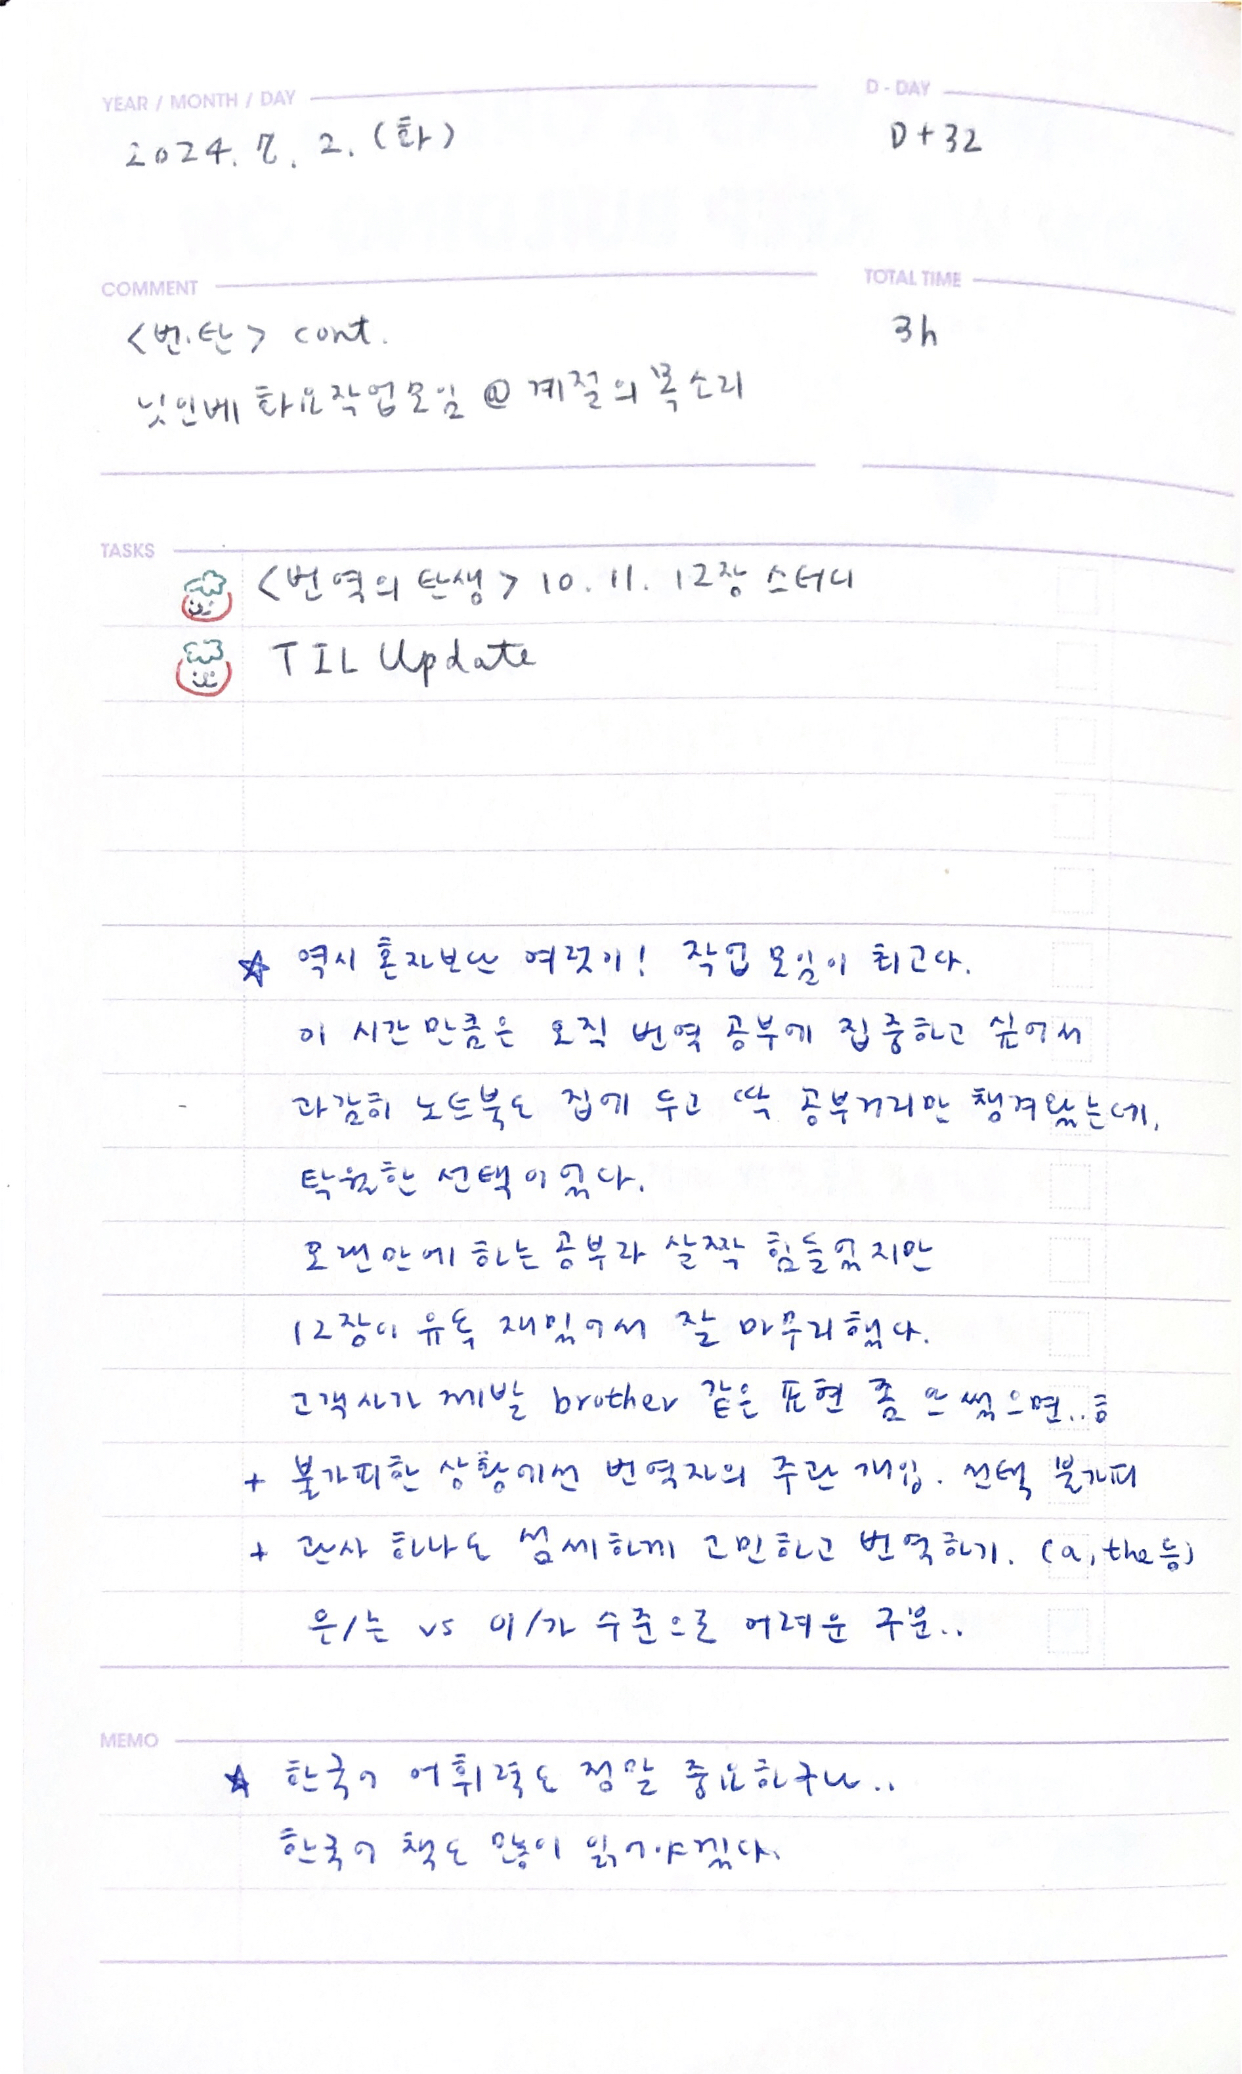 YEAR / MONTH / DAY
D - DAY
2024. 7. 2. (화)
D+32
COMMENT
TOTAL TIME
<번.탄> cont.
3h
닛인베 화요작업모임 @ 계절의 목소리
TASKS
<번역의 탄생> 10. 11. 12장 스터디
TIL Update
☆ 역시 혼자보단 여럿이! 작업 모임이 최고다.
이 시간 만큼은 오직 번역 공부에 집중하고 싶어서
과감히 노트북도 집에 두고 딱 공부거리만 챙겨왔는데,
탁월한 선택이었다.
오랜만에 하는 공부라 살짝 힘들었지만
12장이 유독 재밌어서 잘 마무리했다.
고객사가 제발 brother 같은 표현 좀 안 썼으면..ㅎ
+ 불가피한 상황에선 번역자의 주관 개입. 선택 불가피
+ 관사 하나도 섬세하게 고민하고 번역하기. (a, the 등)
은/는 vs 이/가 수준으로 어려운 구분..
MEMO
★ 한국어 어휘력도 정말 중요하구나..
한국어 책도 많이 읽어야겠다.